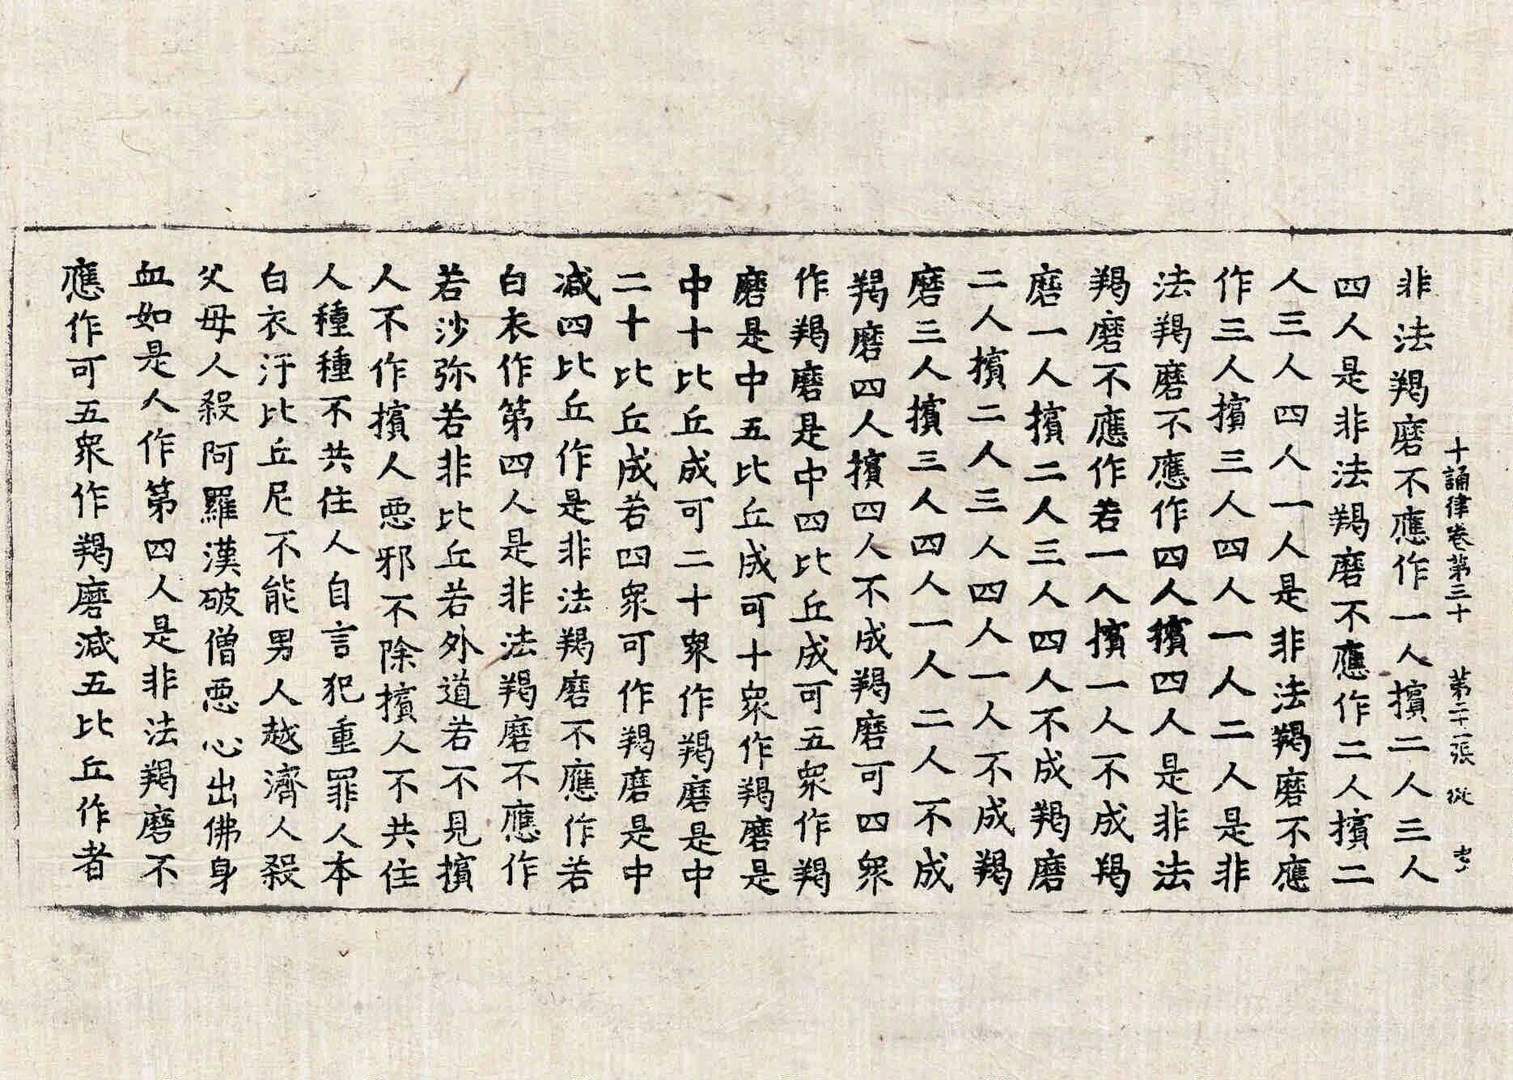 十誦律卷第三十 第二十一張
非法羯磨不應作一人擯二人三人
四人是非法羯磨不應作二人擯二
人三人四人一人是非法羯磨不應
作三人擯三人四人一人二人是非
法羯磨不應作四人擯四人是非法
羯磨不應作若一人擯一人不成羯
磨一人擯二人三人四人不成羯磨
二人擯二人三人四人一人不成羯
磨三人擯三人四人一人二人不成
羯磨四人擯四人不成羯磨可四衆
作羯磨是中四比丘成可五衆作羯
磨是中五比丘成可十衆作羯磨是
中十比丘成可二十衆作羯磨是中
二十比丘成若四衆可作羯磨是中
減四比丘作是非法羯磨不應作若
白衣作第四人是非法羯磨不應作
若沙弥若非比丘若外道若不見擯
人不作擯人惡邪不除擯人不共住
人種種不共住人自言犯重罪人本
白衣汙比丘尼不能男人越濟人殺
父母人殺阿羅漢破僧惡心出佛身
血如是人作第四人是非法羯磨不
應作可五衆作羯磨減五比丘作者